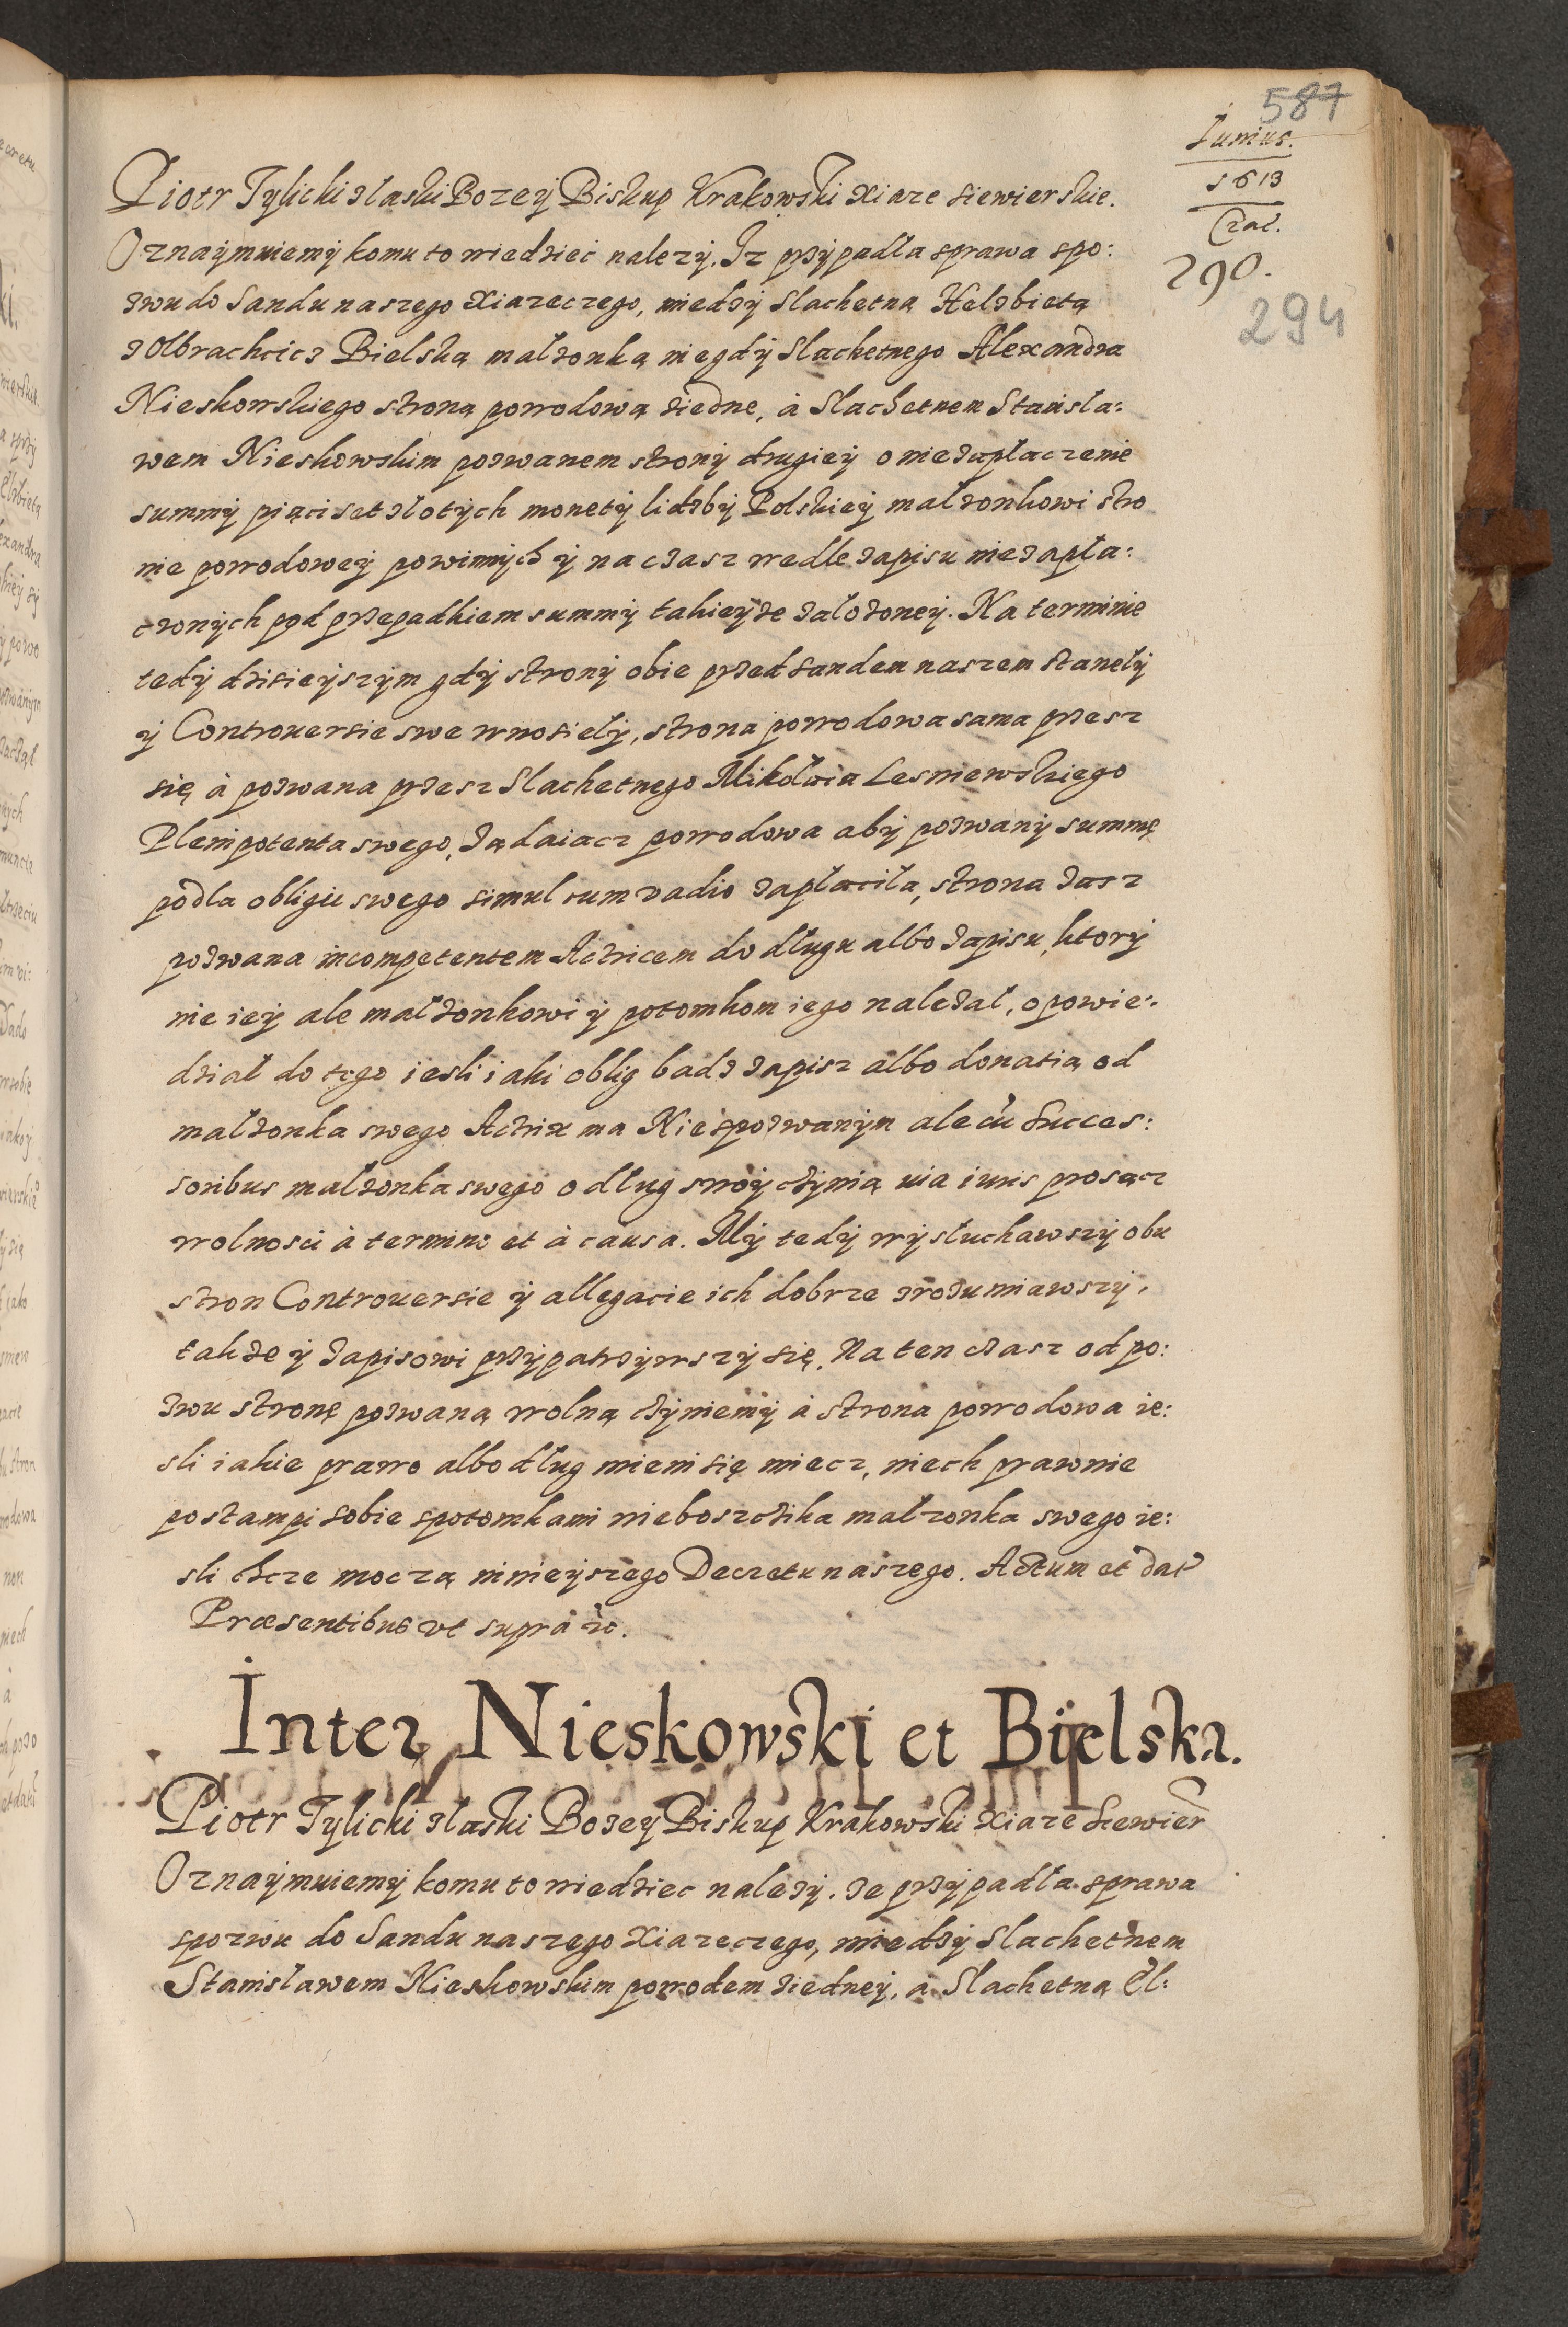 587
Iunius.
1613
Crac.
290.
294
Piotr Tylicki zlaski Bozey Biskup Krakowski Xiaze siewierskie.
Oznaymuiemy komu to wiedziec nalezy. Iz przypadła sprawa spo:
zwu do Sandu naszego Xiazeczego, miedzy Slachetną Helzbietą
z Olbrachcicz Bielską małzonką niegdy Slachetnego Alexandra
Nieskowskiego stroną powodową ziedne, à Slachetnem Stanisła:
wem Nieskowskim pozwanem strony drugiey o niezapłaczenie
summy piąciset złotych monety lidzby Polskiey małzonkowi stro
nie powodowey powinnych y na czasz wedle zapisu niezapła:
czonych pod przepadkiem summy takieyze załozoney. Na terminie
tedy dzisieyszym gdy strony obie przed Sandem naszem stanęły
y Controuersie swe wnosieły, strona powodowa sama przesz
się à pozwana przesz Slachetnego Mikołaia Lesniewskiego
Plenipotenta swego, ządaiacz powodowa aby pozwany summę
podla obligu swego simul cum vadio zapłaciła, strona zasz
pozwana incompetentem Actricem do długu albo zapisu, ktory
nie iey ale małzonkowi y potomkom iego nalezał, opowie:
dział do tego iesli iaki oblig badz zapisz albo donatią od
małzonka swego Actrix ma Nie zpozwanym ale cū Succes:
soribus małzonka swego o dług swoy czynią uia iuris prosącz
wolnosci à termino et à causa. My tedy wysłuchawszy obu
stron Controuersie y allegacie ich dobrze zrozumiawszy,
takze y zapisowi przypatrzywszy się, Na ten czasz od po:
zwu stronę pozwaną wolną czyniemy à strona powodowa ie:
sli iakie prawo albo dług mieni się miecz, niech prawnie
postampi sobie spotomkami nieboszczika małzonka swego ie:
sli chcze moczą ninieyszego Decretu naszego. Actum et dat
Præsentibus vt supra &c.
Inter Nieskowski et Bielska.
Piotr Tylicki zlaski Bozey Biskup Krakowski Xiaze Siewier
Oznaymuiemy komu to wiedziec nalezy. ze przypadła sprawa
spozwu do Sandu naszego Xiazeczego, miedzy Slachetnem
Stanisławem Nieskowskim powodem ziedney, à Slachetną El: